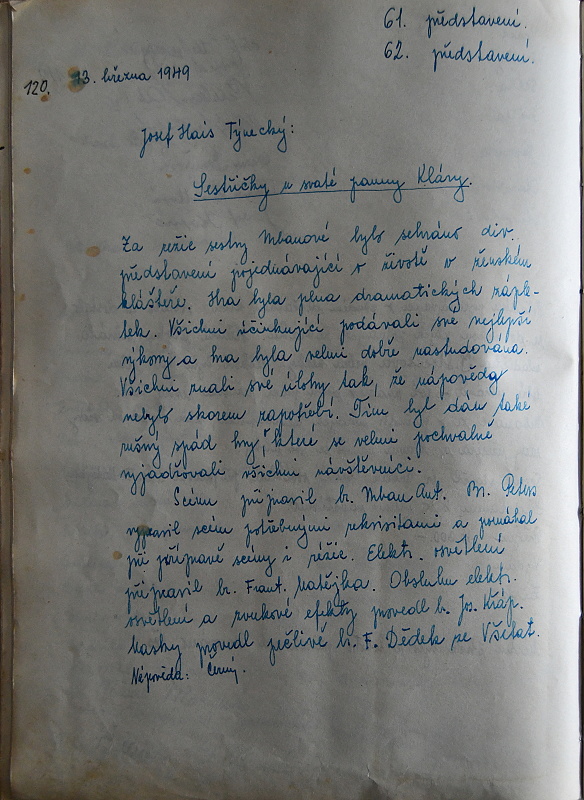 61. představení.
62. představení.
120. 13. března 1949
Josef Hais Týnecký:
Sestřičky u svaté panny Kláry.
Za režie sestry Urbanové bylo sehráno div.
představení pojednávající o životě v ženském
klášteře. Hra byla plna dramatických záple-
tek. Všichni účinkující podávali své nejlepší
výkony a hra byla velmi dobře nastudována.
Všichni znali své úlohy tak, že nápovědy
nebylo skorem zapotřebí. Tím byl dán také
rušný spád hry, které se velmi pochvalně
vyjadřovali všichni návštěvníci.
Scénu připravil br. Urban Ant. Br. Peters
vypravil scénu potřebnými rekvisitami a pomáhal
při přípravě scény i režie. Elektr. osvětlení
připravil br. Frant. Matějka. Obsluhu elektr.
osvětlení a zvukové efekty provedl br. Jos. Kráp.
Masky provedl pečlivě br. F. Dědek ze Všetat.
Nápověda: Černý.